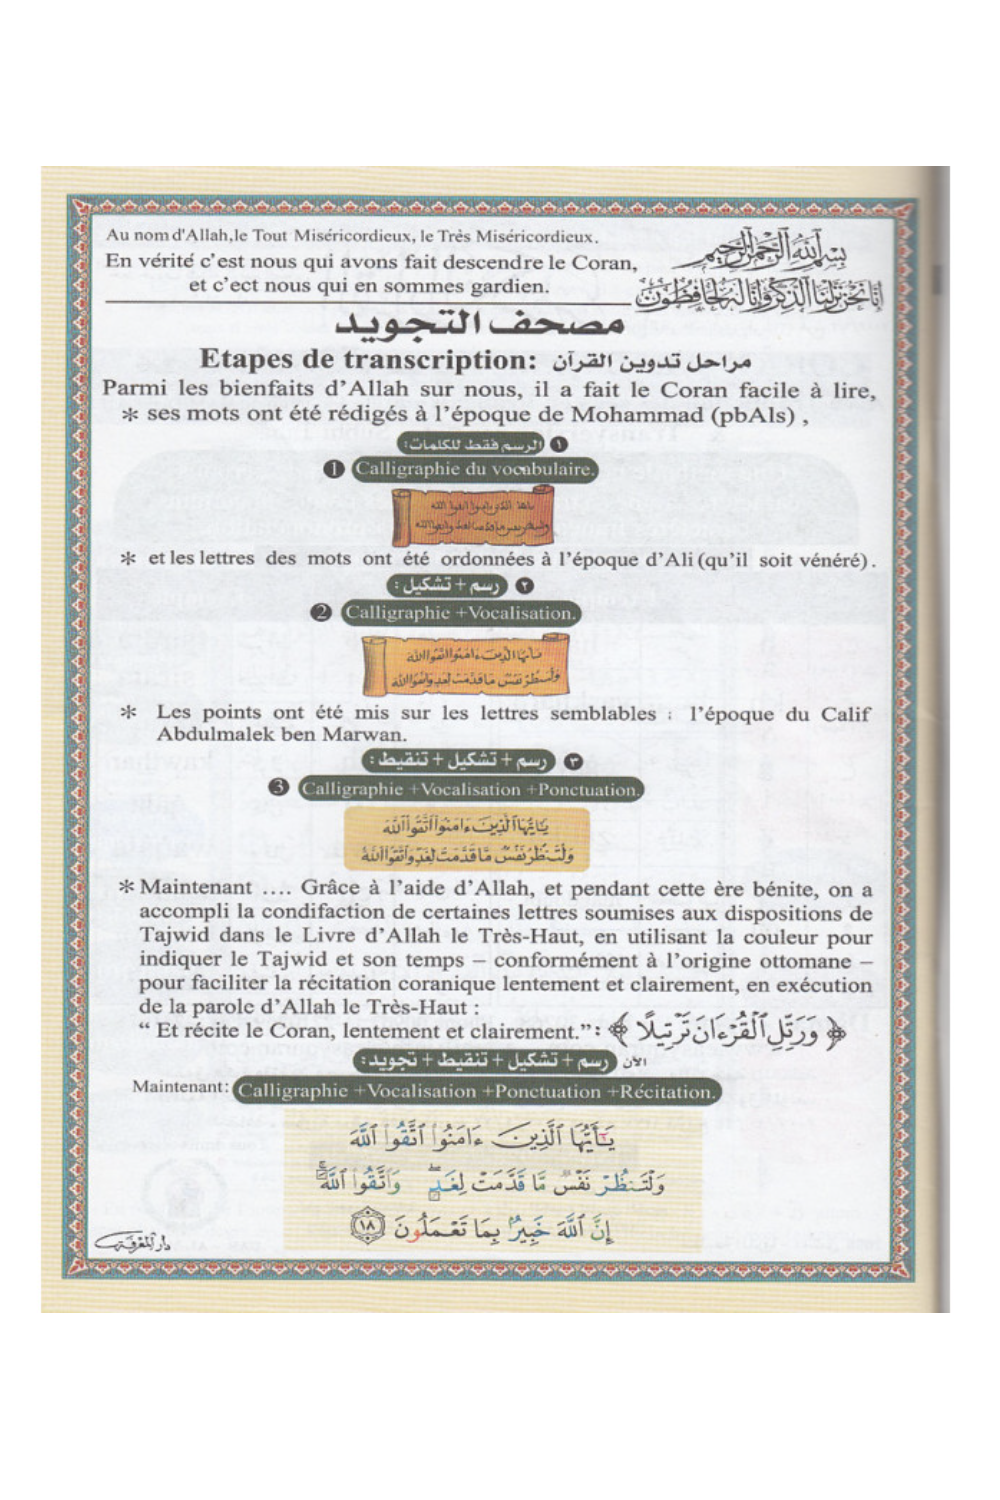 Au nom d'Allah,le Tout Miséricordieux, le Très Miséricordieux.
بسم الله الرحمن الرحيم
En vérité c'est nous qui avons fait descendre le Coran,
et c'ect nous qui en sommes gardien.
إنا نحن نزلنا الذكر وإنا له لحافظون
مصحف التجويد
Etapes de transcription: مراحل تدوين القرآن
Parmi les bienfaits d'Allah sur nous, il a fait le Coran facile à lire,
* ses mots ont été rédigés à l'époque de Mohammad (pbAls) ,
١ الرسم فقط للكلمات:
1 Calligraphie du vocabulaire.
* et les lettres des mots ont été ordonnées à l'époque d'Ali (qu'il soit vénéré).
٢ رسم + تشكيل :
2 Calligraphie +Vocalisation.
* Les points ont été mis sur les lettres semblables : l'époque du Calif
Abdulmalek ben Marwan.
٣ رسم + تشكيل + تنقيط :
3 Calligraphie +Vocalisation +Ponctuation.
يَٰٓأَيُّهَا ٱلَّذِينَ ءَامَنُوا ٱتَّقُوا ٱللَّهَ
وَلْتَنظُرْ نَفْسٌ مَّا قَدَّمَتْ لِغَدٍ وَٱتَّقُوا ٱللَّهَ
* Maintenant .... Grâce à l'aide d'Allah, et pendant cette ère bénite, on a
accompli la condifaction de certaines lettres soumises aux dispositions de
Tajwid dans le Livre d'Allah le Très-Haut, en utilisant la couleur pour
indiquer le Tajwid et son temps – conformément à l'origine ottomane –
pour faciliter la récitation coranique lentement et clairement, en exécution
de la parole d'Allah le Très-Haut :
“ Et récite le Coran, lentement et clairement.”: ﴿ وَرَتِّلِ ٱلْقُرْءَانَ تَرْتِيلًا ﴾
الآن رسم + تشكيل + تنقيط + تجويد:
Maintenant: Calligraphie +Vocalisation +Ponctuation +Récitation.
يَٰٓأَيُّهَا ٱلَّذِينَ ءَامَنُوا ٱتَّقُوا ٱللَّهَ
وَلْتَنظُرْ نَفْسٌ مَّا قَدَّمَتْ لِغَدٍۖ وَٱتَّقُوا ٱللَّهَۚ
إِنَّ ٱللَّهَ خَبِيرٌۢ بِمَا تَعْمَلُونَ ١٨
دار المعرفة